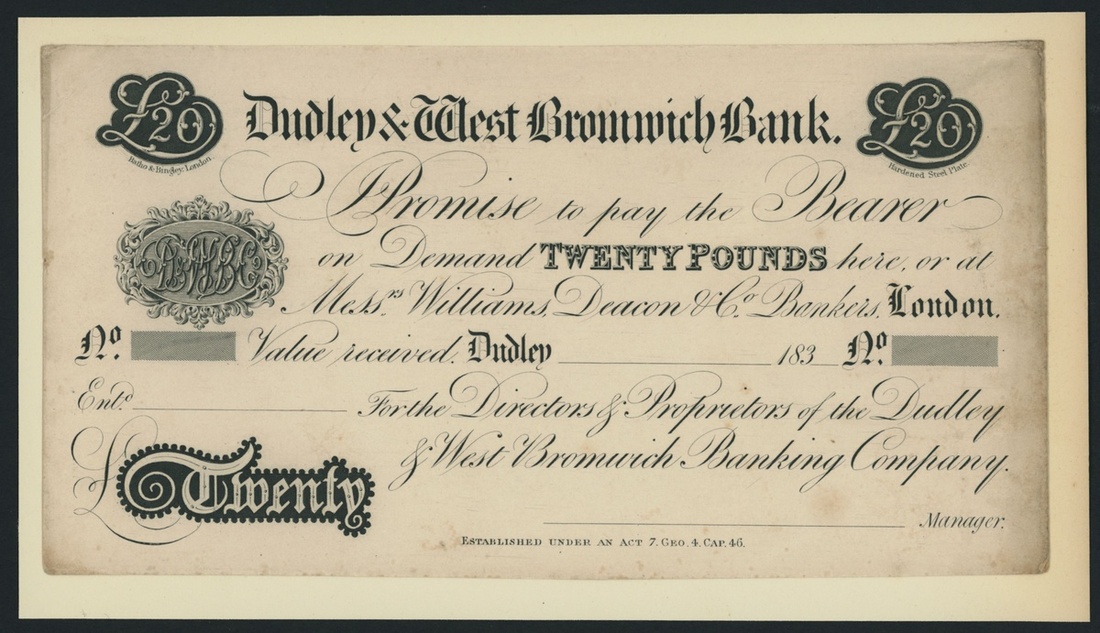 £20
£20
Dudley & West Bromwich Bank.
Hardened Steel Plate.
I Promise to pay the Bearer
on Demand TWENTY POUNDS here, or at
Messrs. Williams, Deacon & Co. Bankers, London.
No. Value received. Dudley 183 No.
Entd. For the Directors & Proprietors of the Dudley
& West Bromwich Banking Company.
£ Twenty
Manager.
ESTABLISHED UNDER AN ACT 7. GEO. 4. CAP. 46.